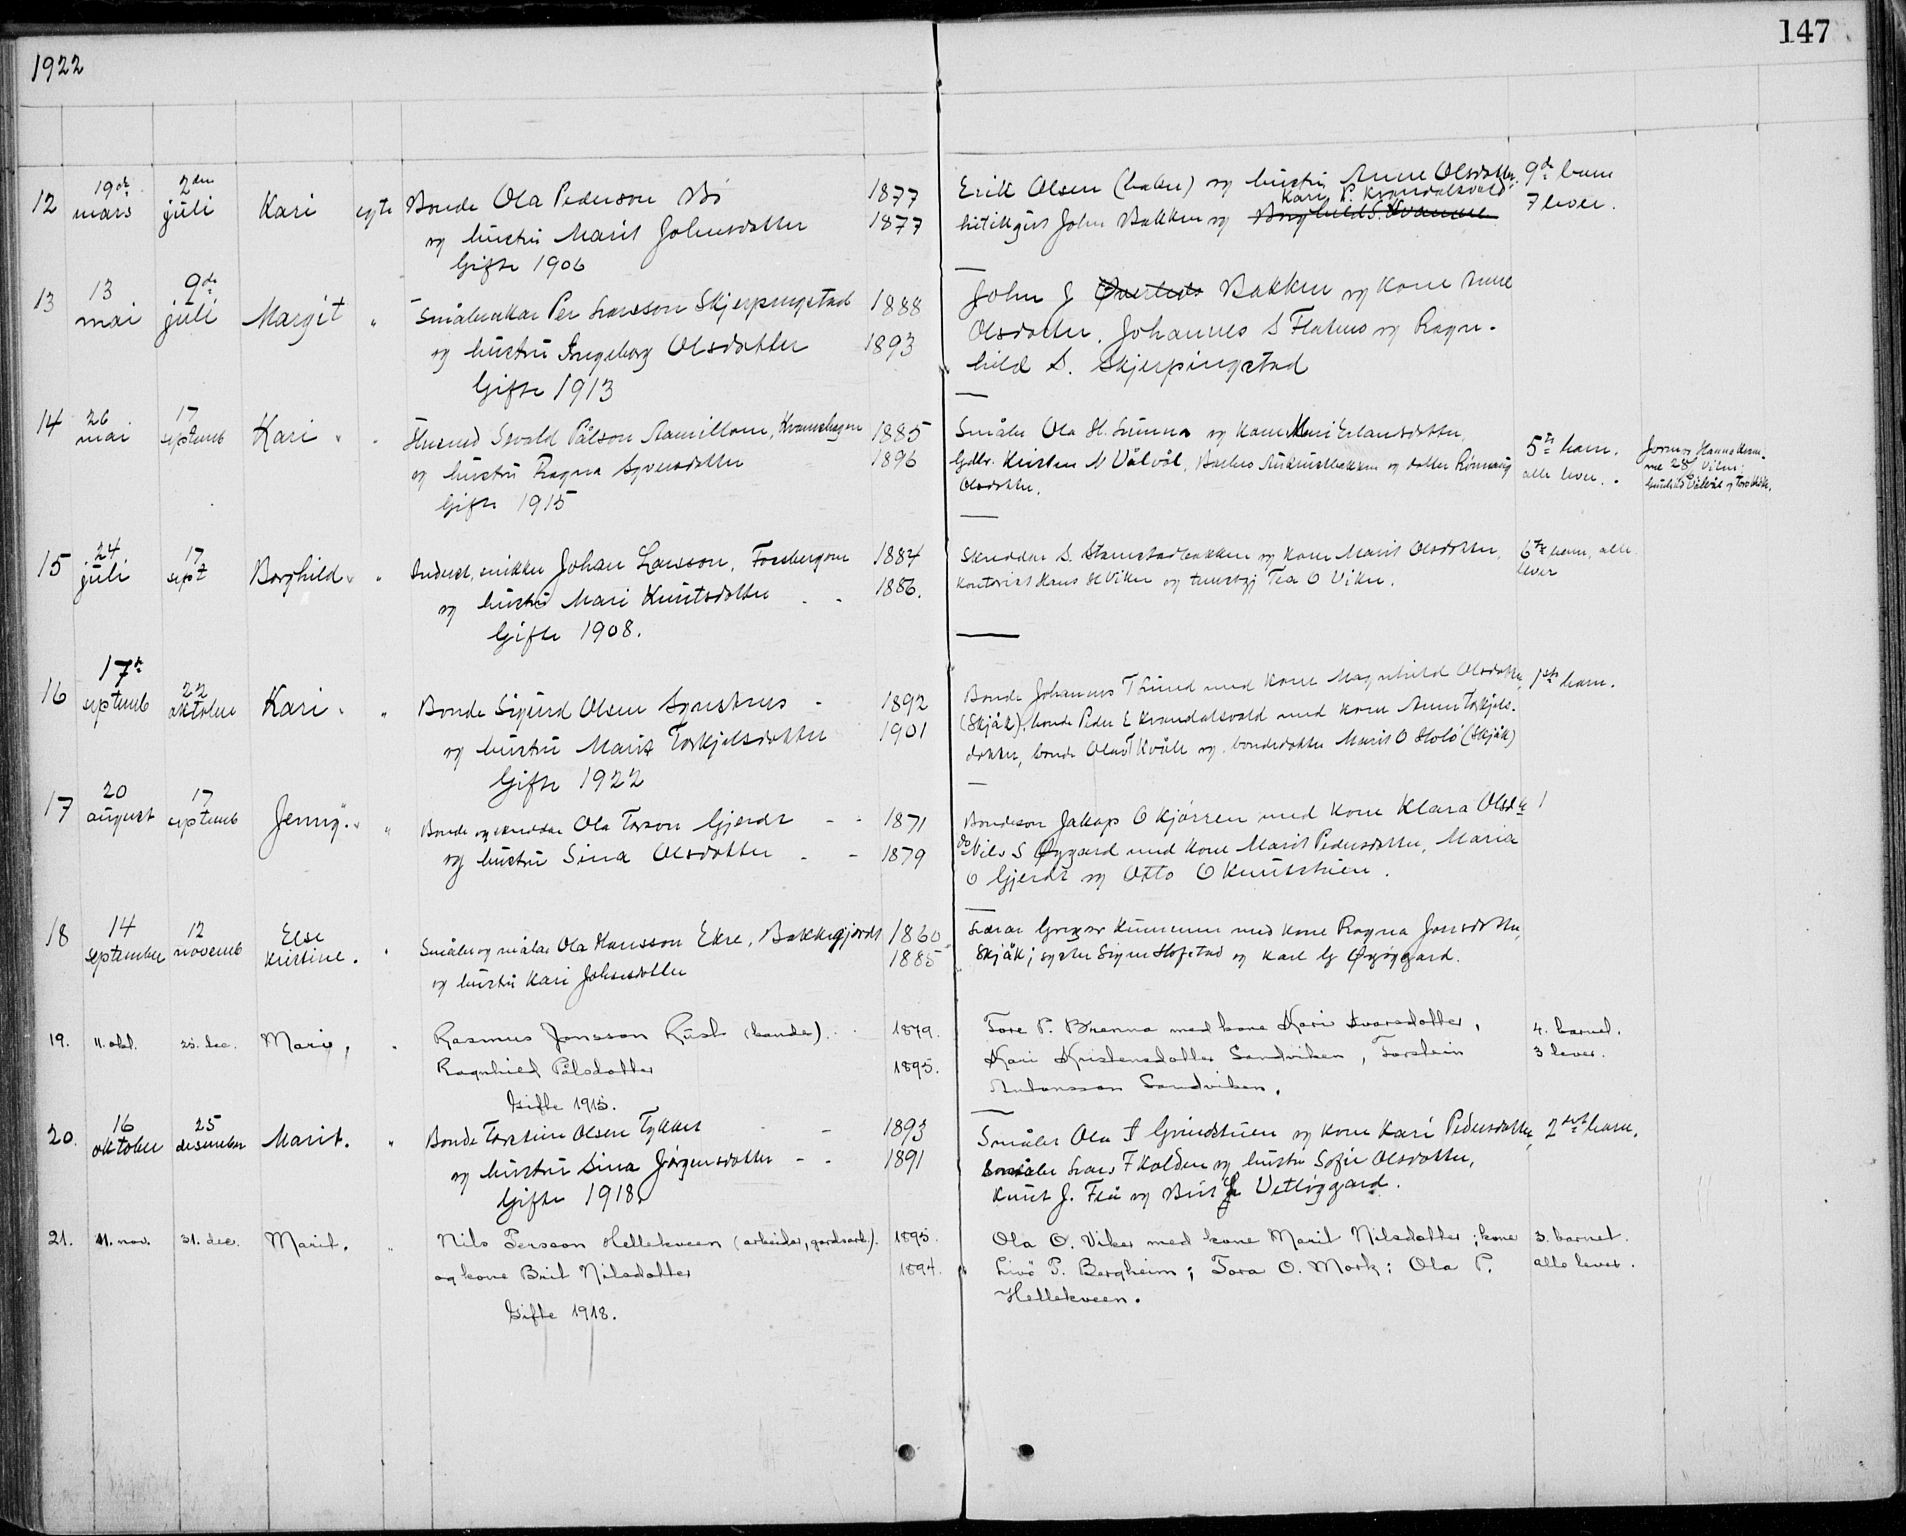 147
1922
12 19de mars 2den juli Kari egte Bonde Ola Pederson Bö 1877
og hustru Marit Johnsdotter 1877
Gifte 1906
Erik Olsen (baker) og hustru Anne Olsdotter 9de barn
Kari P. Kvandalsvold
John Bakken og 7 lever.
13 13 mai 9de juli Margit " Småbrukar Per Larsson Skjerpingstad 1888
og hustru Ingeborg Olsdotter 1893
Gifte 1913
John J Bakken og kone Anne
Olsdotter, Johannes S Flatmo og Ragn-
hild S. Skjerpingstad
14 26 mai 17 septemb Kari " Syvald Pålson 1885
og hustru Ragna Syversdotter 1896
Gifte 1915
Småbr Ola H. og kone Mari Erlandsdotter,
Gdbr. Kristen N Vålvål, og dotter Rønnaug
Olsdotter.
5te barn.
alle lever.
15 24 juli 17 sept Borghild " snikker Johan Larsson, 1884
og hustru Mari Knutsdotter - - 1886.
Gifte 1908.
Skreddar S. Stamstadbakken og kone Marit Olsdotter,
kontorist Hans H Viker og Tea O Viker.
6te barn, alle
lever
16 17de septemb 22 oktober Kari " Bonde Sigurd Olsen 1892
og hustru Marit Torkjelsdotter 1901
Gifte 1922
Bonde Johannes T Lund med kone Magnhild Olsdotter, 1ste barn.
(Skjåk), bonde Peder E Kvandalsvold med kone Anne Torkjels-
dotter, bonde Olav T Kvåle og bondedotter Marit O Holö (Skjåk)
17 20 august 17 septemb Jenny " Bonde og skreddar Ola Torson Gjerdt - - 1871
og hustru Sina Olsdotter - - 1879
Bondeson Jakop O Kjørren med kone Klara Olsd. 1
do Nils S Øygard med kone Marit Pedersdotter, Maria
O Gjerdt og Otto O Knutstuen.
18 14 september 12 novemb Else
Kristine. " Småbr og målar Ola Hansson Ekre, Bakkegjerdt 1860
og hustru Kari Johnsdotter 1885
Lærar Gregar med kone Ragna Jonsdotter,
Skjåk; syster Signe Hofstad og Karl G Øygard.
19. 11. okt. 25. dec. Mari, " Rasmus Jonsson Rusti (bonde). 1879.
Ragnhild Pålsdotter 1895.
Gifte 1915.
Tore P. Brenna med kone Kari Ivarsdotter, 4. barnet.
Kari Kristensdotter Sandviken, Torstein 3 lever.
Antonsson Sandviken.
20. 16 oktober 25 desember Marit. " Bonde Torstein Olsen - 1893
og hustru Sina Jørgensdotter - - 1891
Gifte 1918.
Småbr Ola I Grindstuen og kone Kari Pedersdotter, 2det barn.
Småbr Lars F Kolden og hustru Sofie Olsdotter,
Knut J. Flå og Brit J Vetløygard.
21. 11. nov. 31. dec. Marit. " Nils Persson Hellekveen (arbeider, gardsarb). 1895.
og kone Brit Nilsdotter 1894.
Gifte 1918.
Ola O. Viker med kone Marit Nilsdotter; kone 3. barnet.
Livö P. Bergheim; Tora O. Mork; Ola P. alle lever.
Hellekveen.